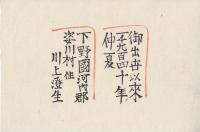 御出世以來
一千九百四十年
仲夏
下野國河内郡
姿川村住
川上澄生